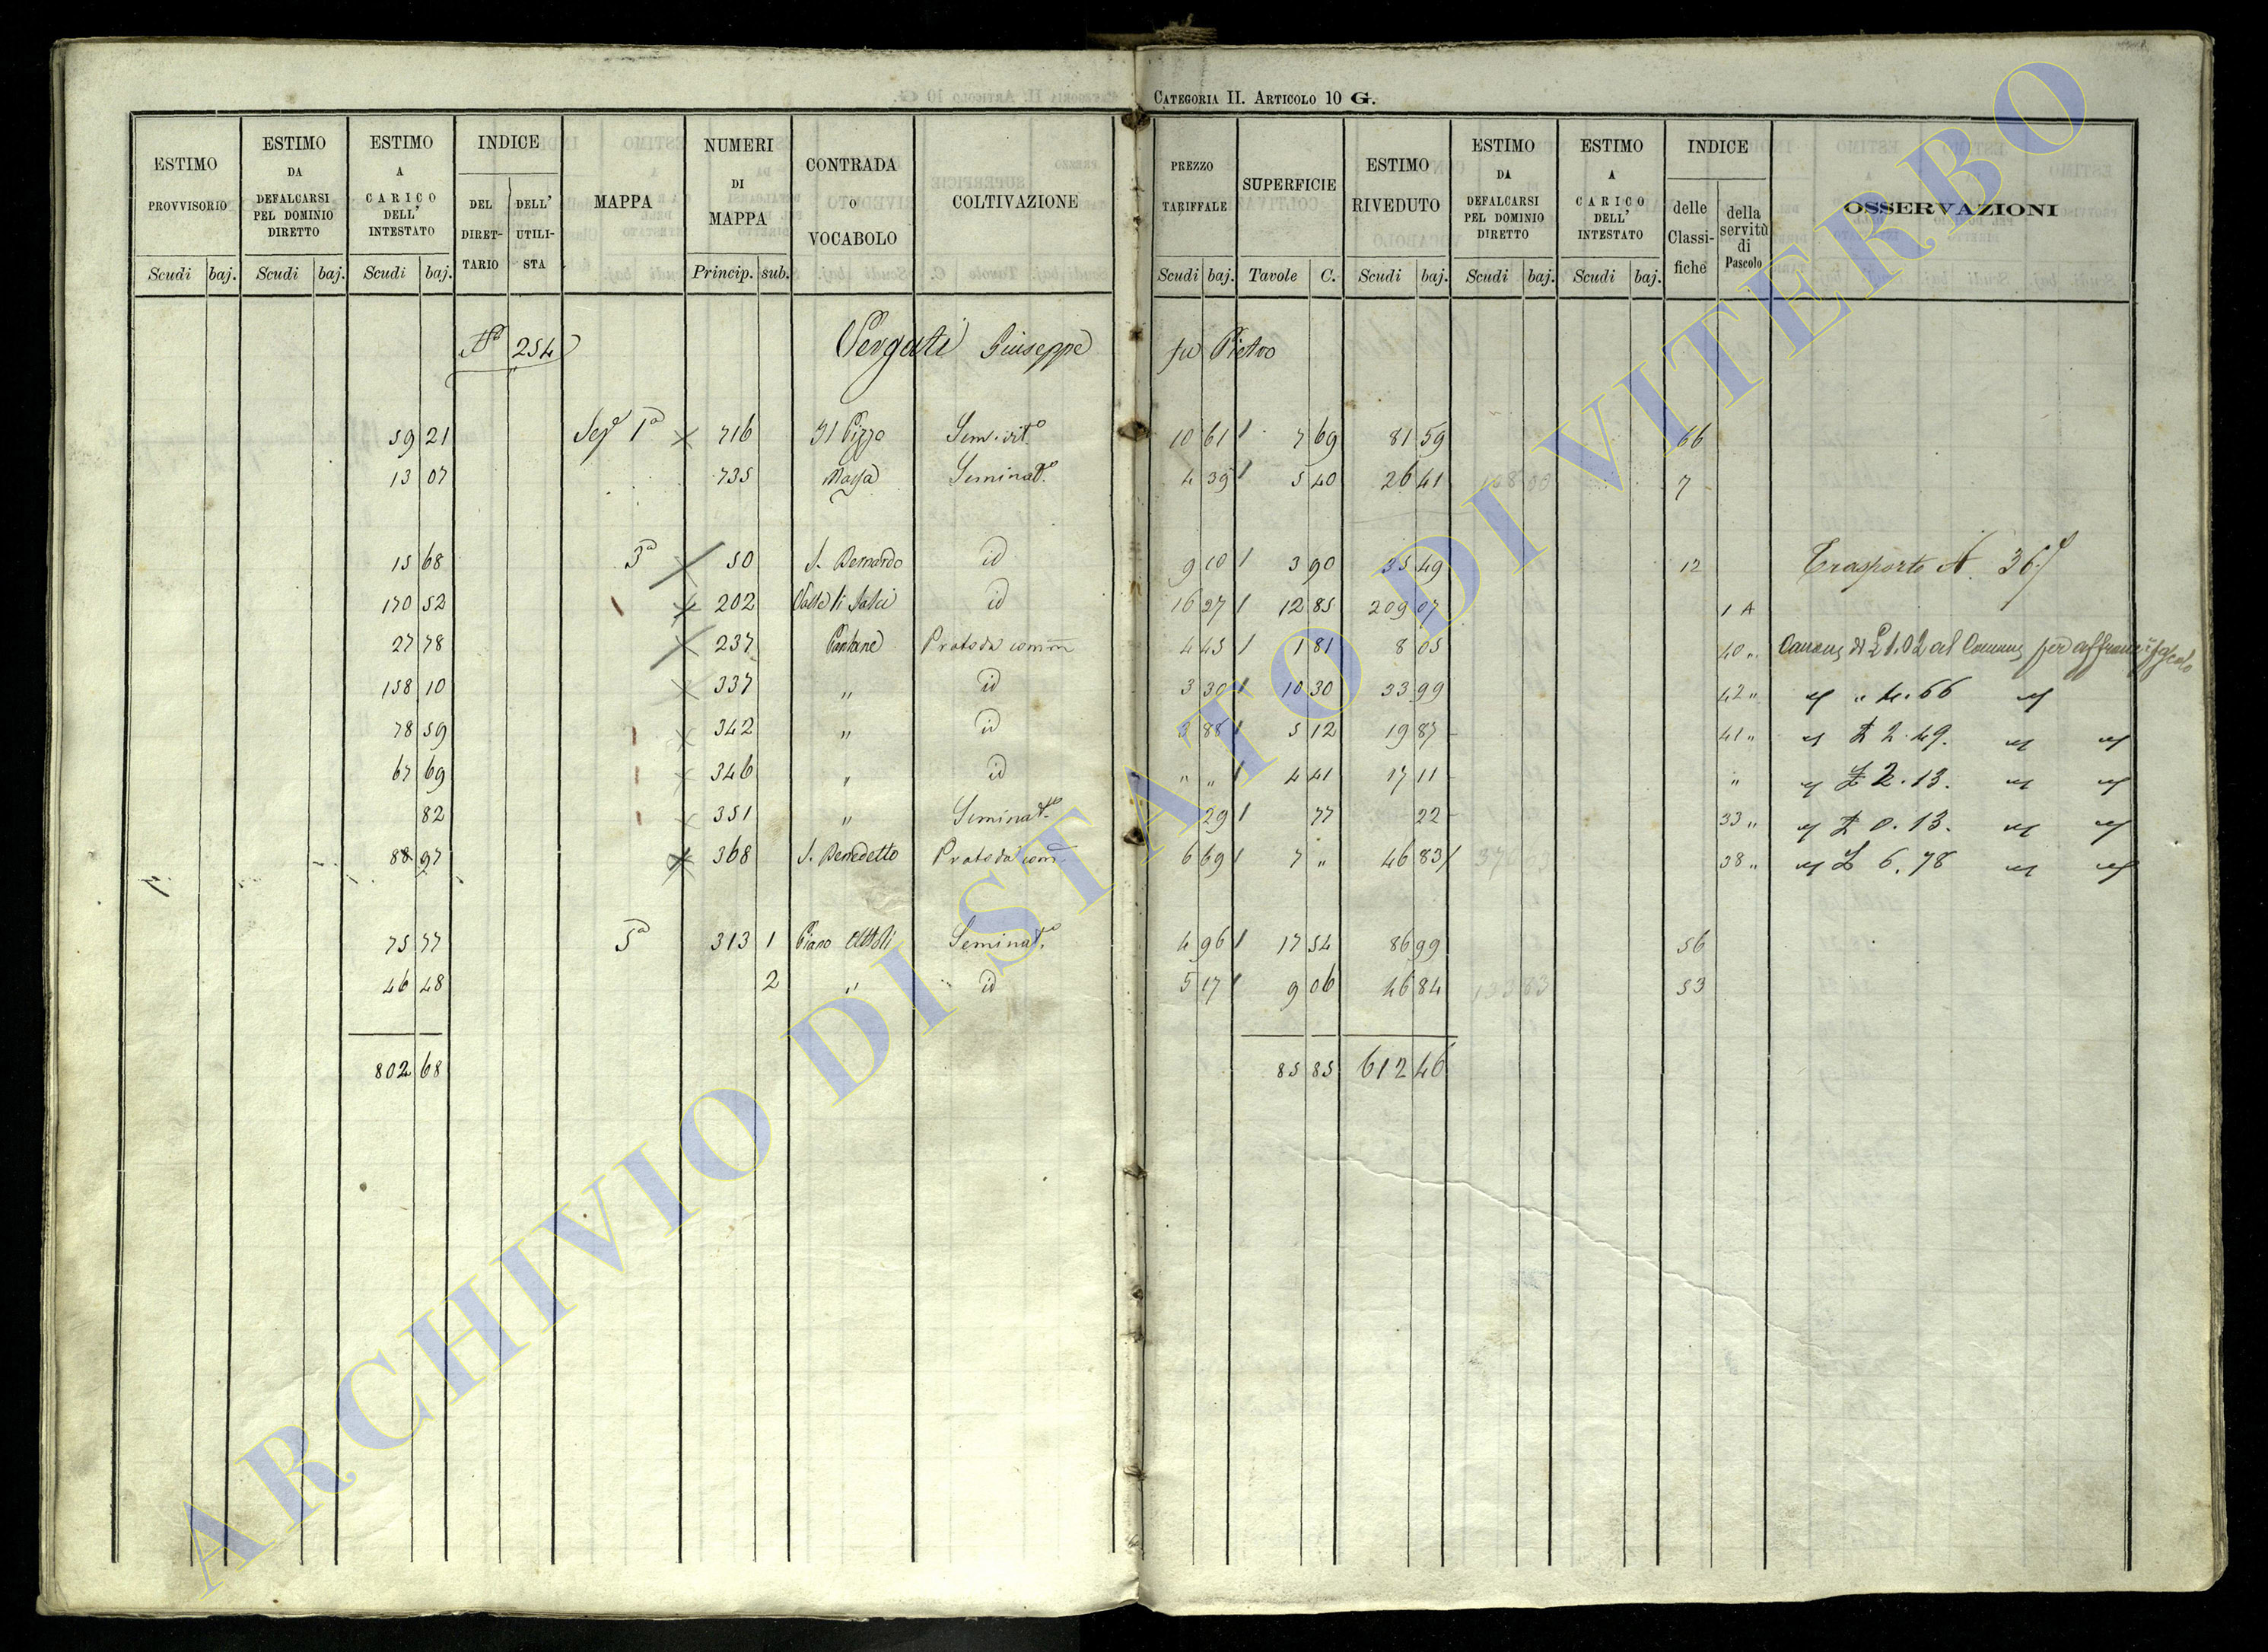 CATEGORIA II. ARTICOLO 10 G.
ESTIMO PROVVISORIO Scudi baj. ESTIMO DA DEFALCARSI PEL DOMINIO DIRETTO Scudi baj. ESTIMO A CARICO DELL' INTESTATO Scudi baj. INDICE DEL DIRETTARIO DELL' UTILISTA MAPPA NUMERI DI MAPPA Princip. sub. CONTRADA O VOCABOLO COLTIVAZIONE PREZZO TARIFFALE Scudi baj. SUPERFICIE Tavole C. ESTIMO RIVEDUTO Scudi baj. ESTIMO DA DEFALCARSI PEL DOMINIO DIRETTO Scudi baj. ESTIMO A CARICO DELL' INTESTATO Scudi baj. INDICE delle Classifiche della servitù di Pascolo OSSERVAZIONI
No 254 Giuseppe fu Pietro
59 21 Seze 1a 716 Il Pizzo Sem. vito 10 61 7 69 81 59 66
13 07 735 Massa Seminato 4 39 5 40 26 41 7
15 68 3a 50 S. Bernardo id 9 10 3 90 35 49 12 Trasporto N. 36
170 52 202 id 16 27 12 85 209 07 1 A
27 78 237 Pantane Prato da comm 4 45 1 81 8 05 40 " Canone di £ 1.02 al Comune per affranc. pascolo
158 10 337 " id 3 30 10 30 33 99 42 " " " 4.66 "
78 59 342 " id 3 88 5 12 19 87 41 " " £ 2.49. " "
67 69 346 " id " " 4 41 17 11 " " £ 2.13. " "
82 351 " Seminato 29 77 22 33 " " £ 0.13. " "
88 97 368 S. Benedetto Prato da com. 6 69 7 " 46 83 38 " " £ 6.78 " "
75 77 5a 313 1 Piano Seminato 4 96 17 54 86 99 56
46 48 2 " id 5 17 9 06 46 84 133 83 53
802 68 85 85 612 46
ARCHIVIO DI STATO DI VITERBO